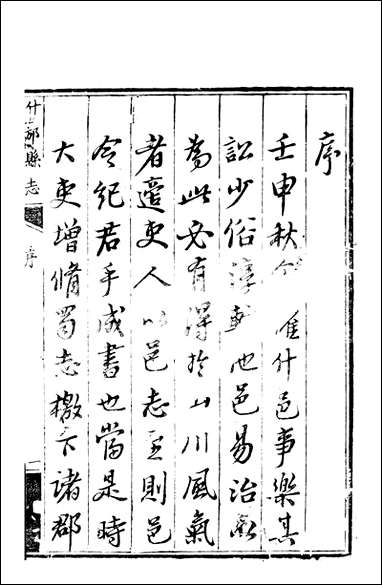 序
壬申秋什邑事樂其
訟少俗淳邑易治
為此必有得於山川風氣
者吏人以邑志至則邑
令紀君手成書也當是時
大吏增脩蜀志檄下諸郡
什邡縣志
序